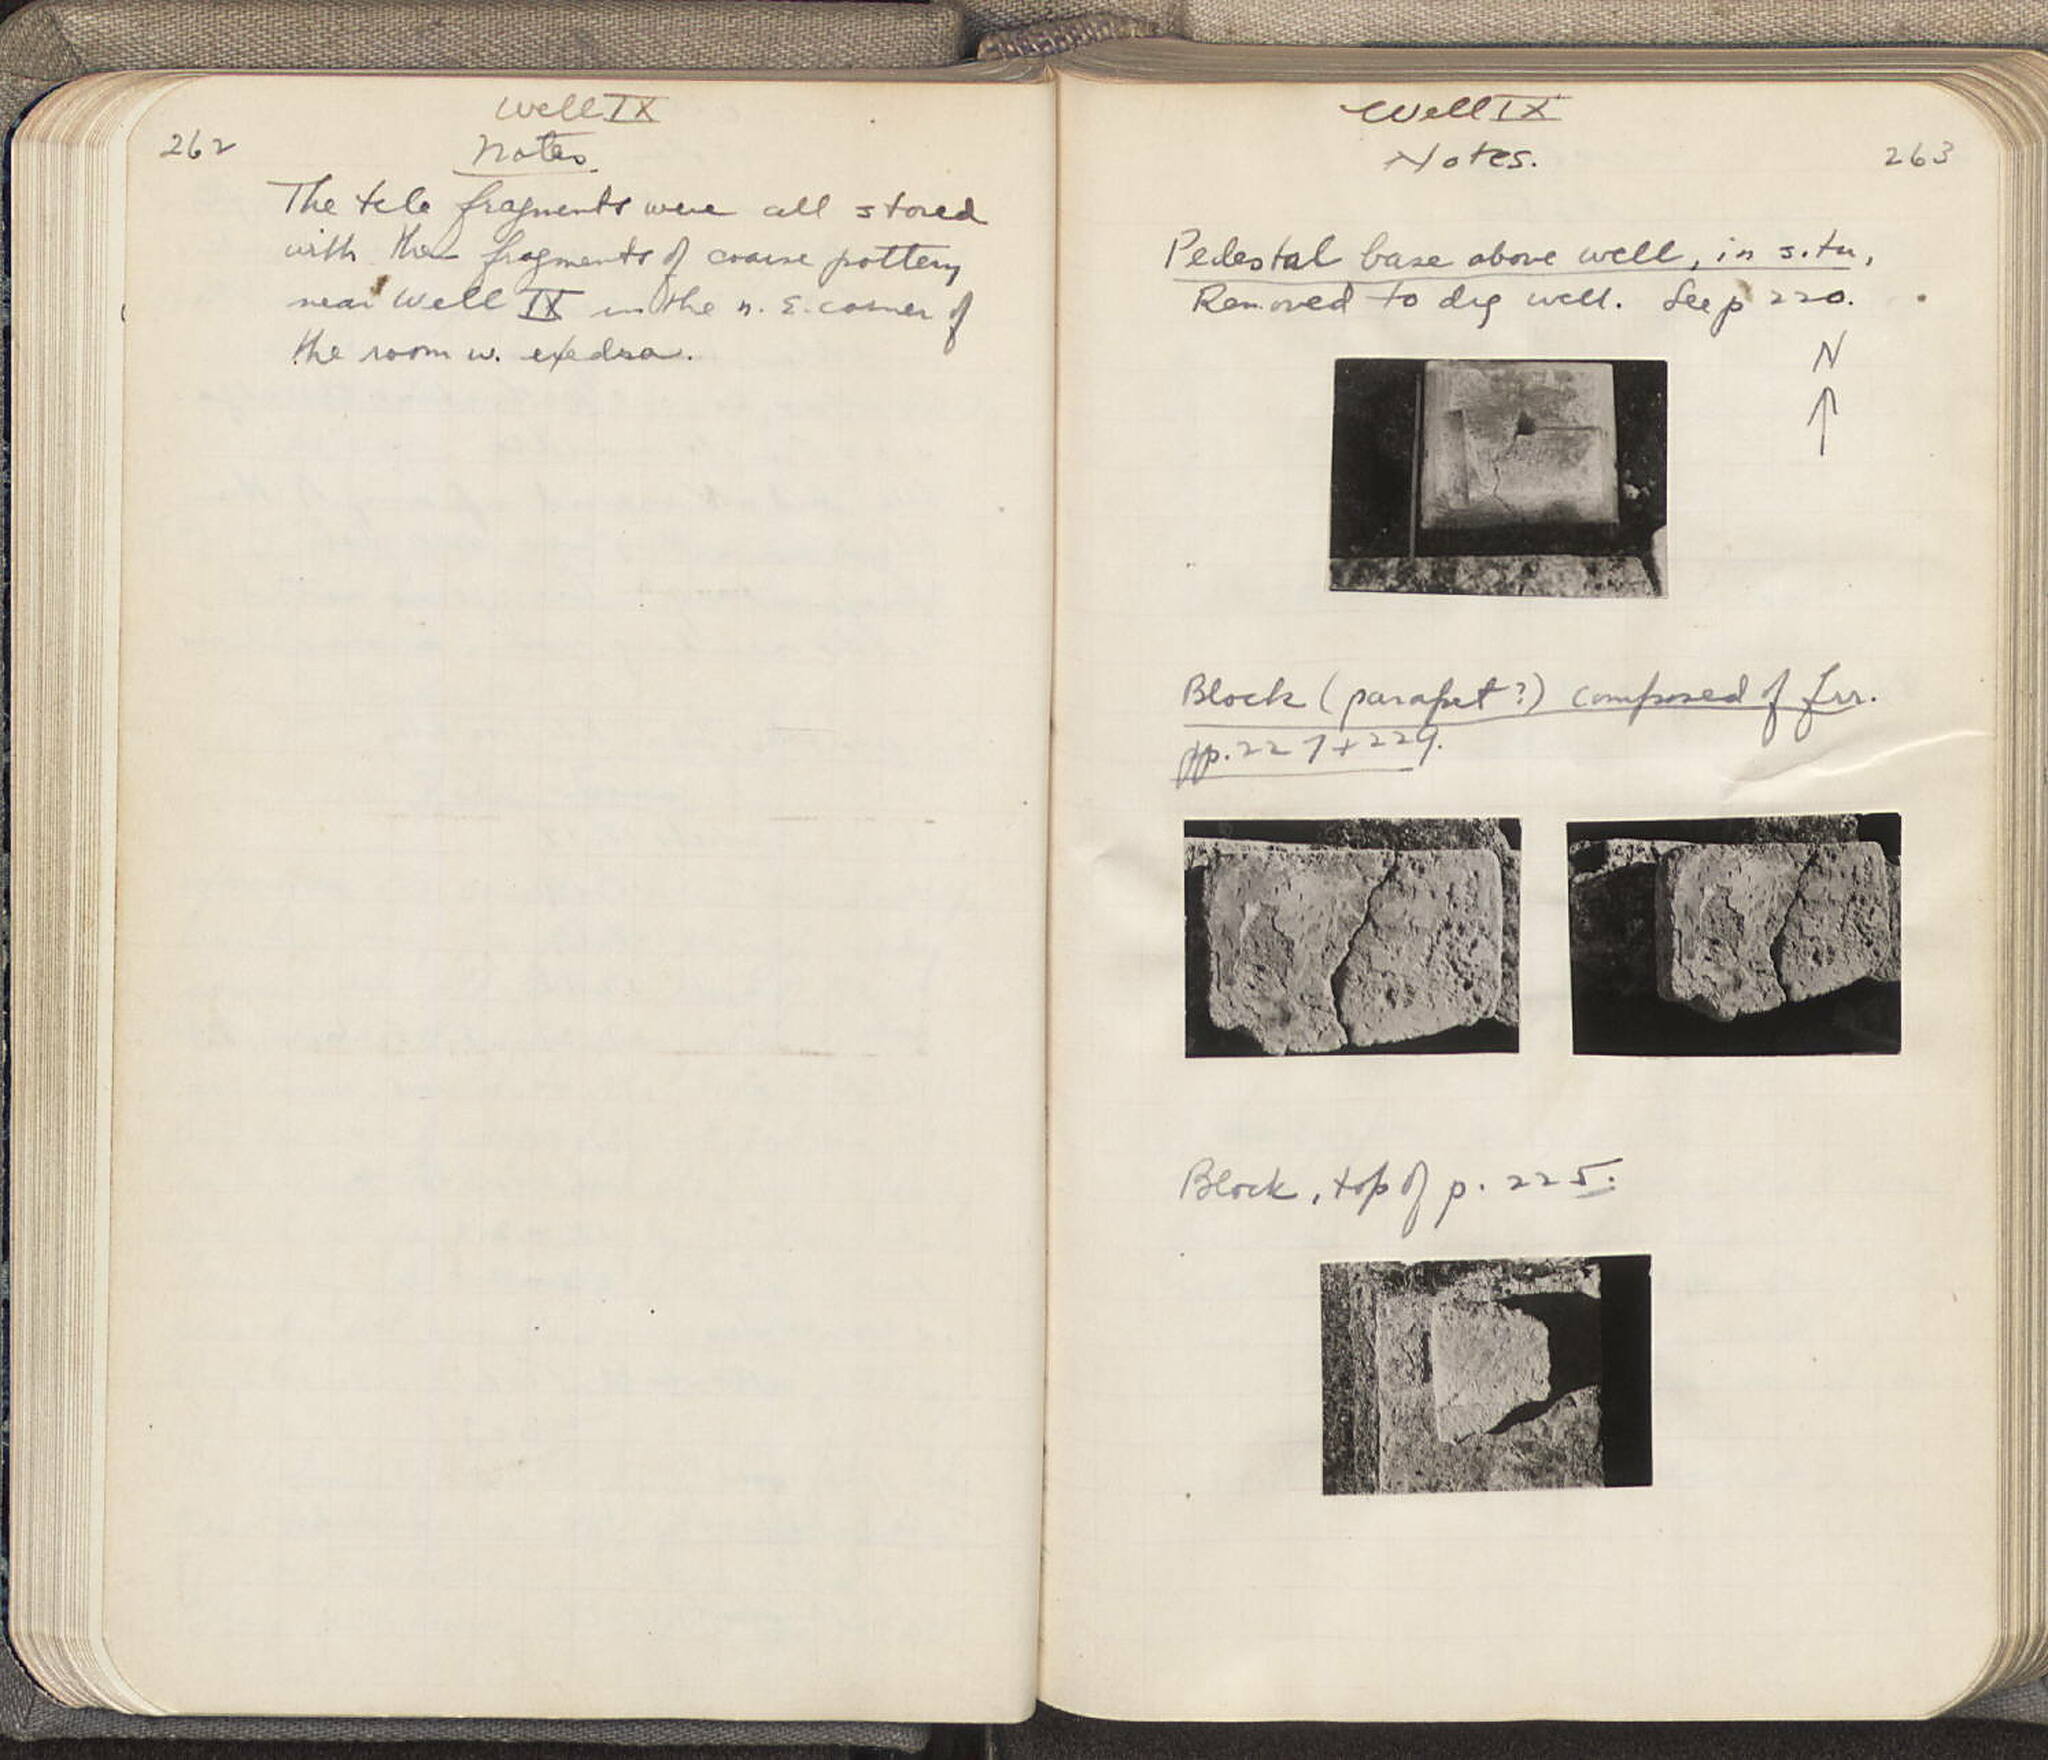 Well IX
262
Notes
The tile fragments were all stored
with the fragments of coarse pottery
near Well IX in the n. E. corner of
the room w. exedra.
Well IX
Notes.
263
Pedestal base above well, in situ,
Removed to dig well. See p 220.
N
Block (parapet?) composed of frr.
pp. 227 + 229.
Block, top of p. 225.